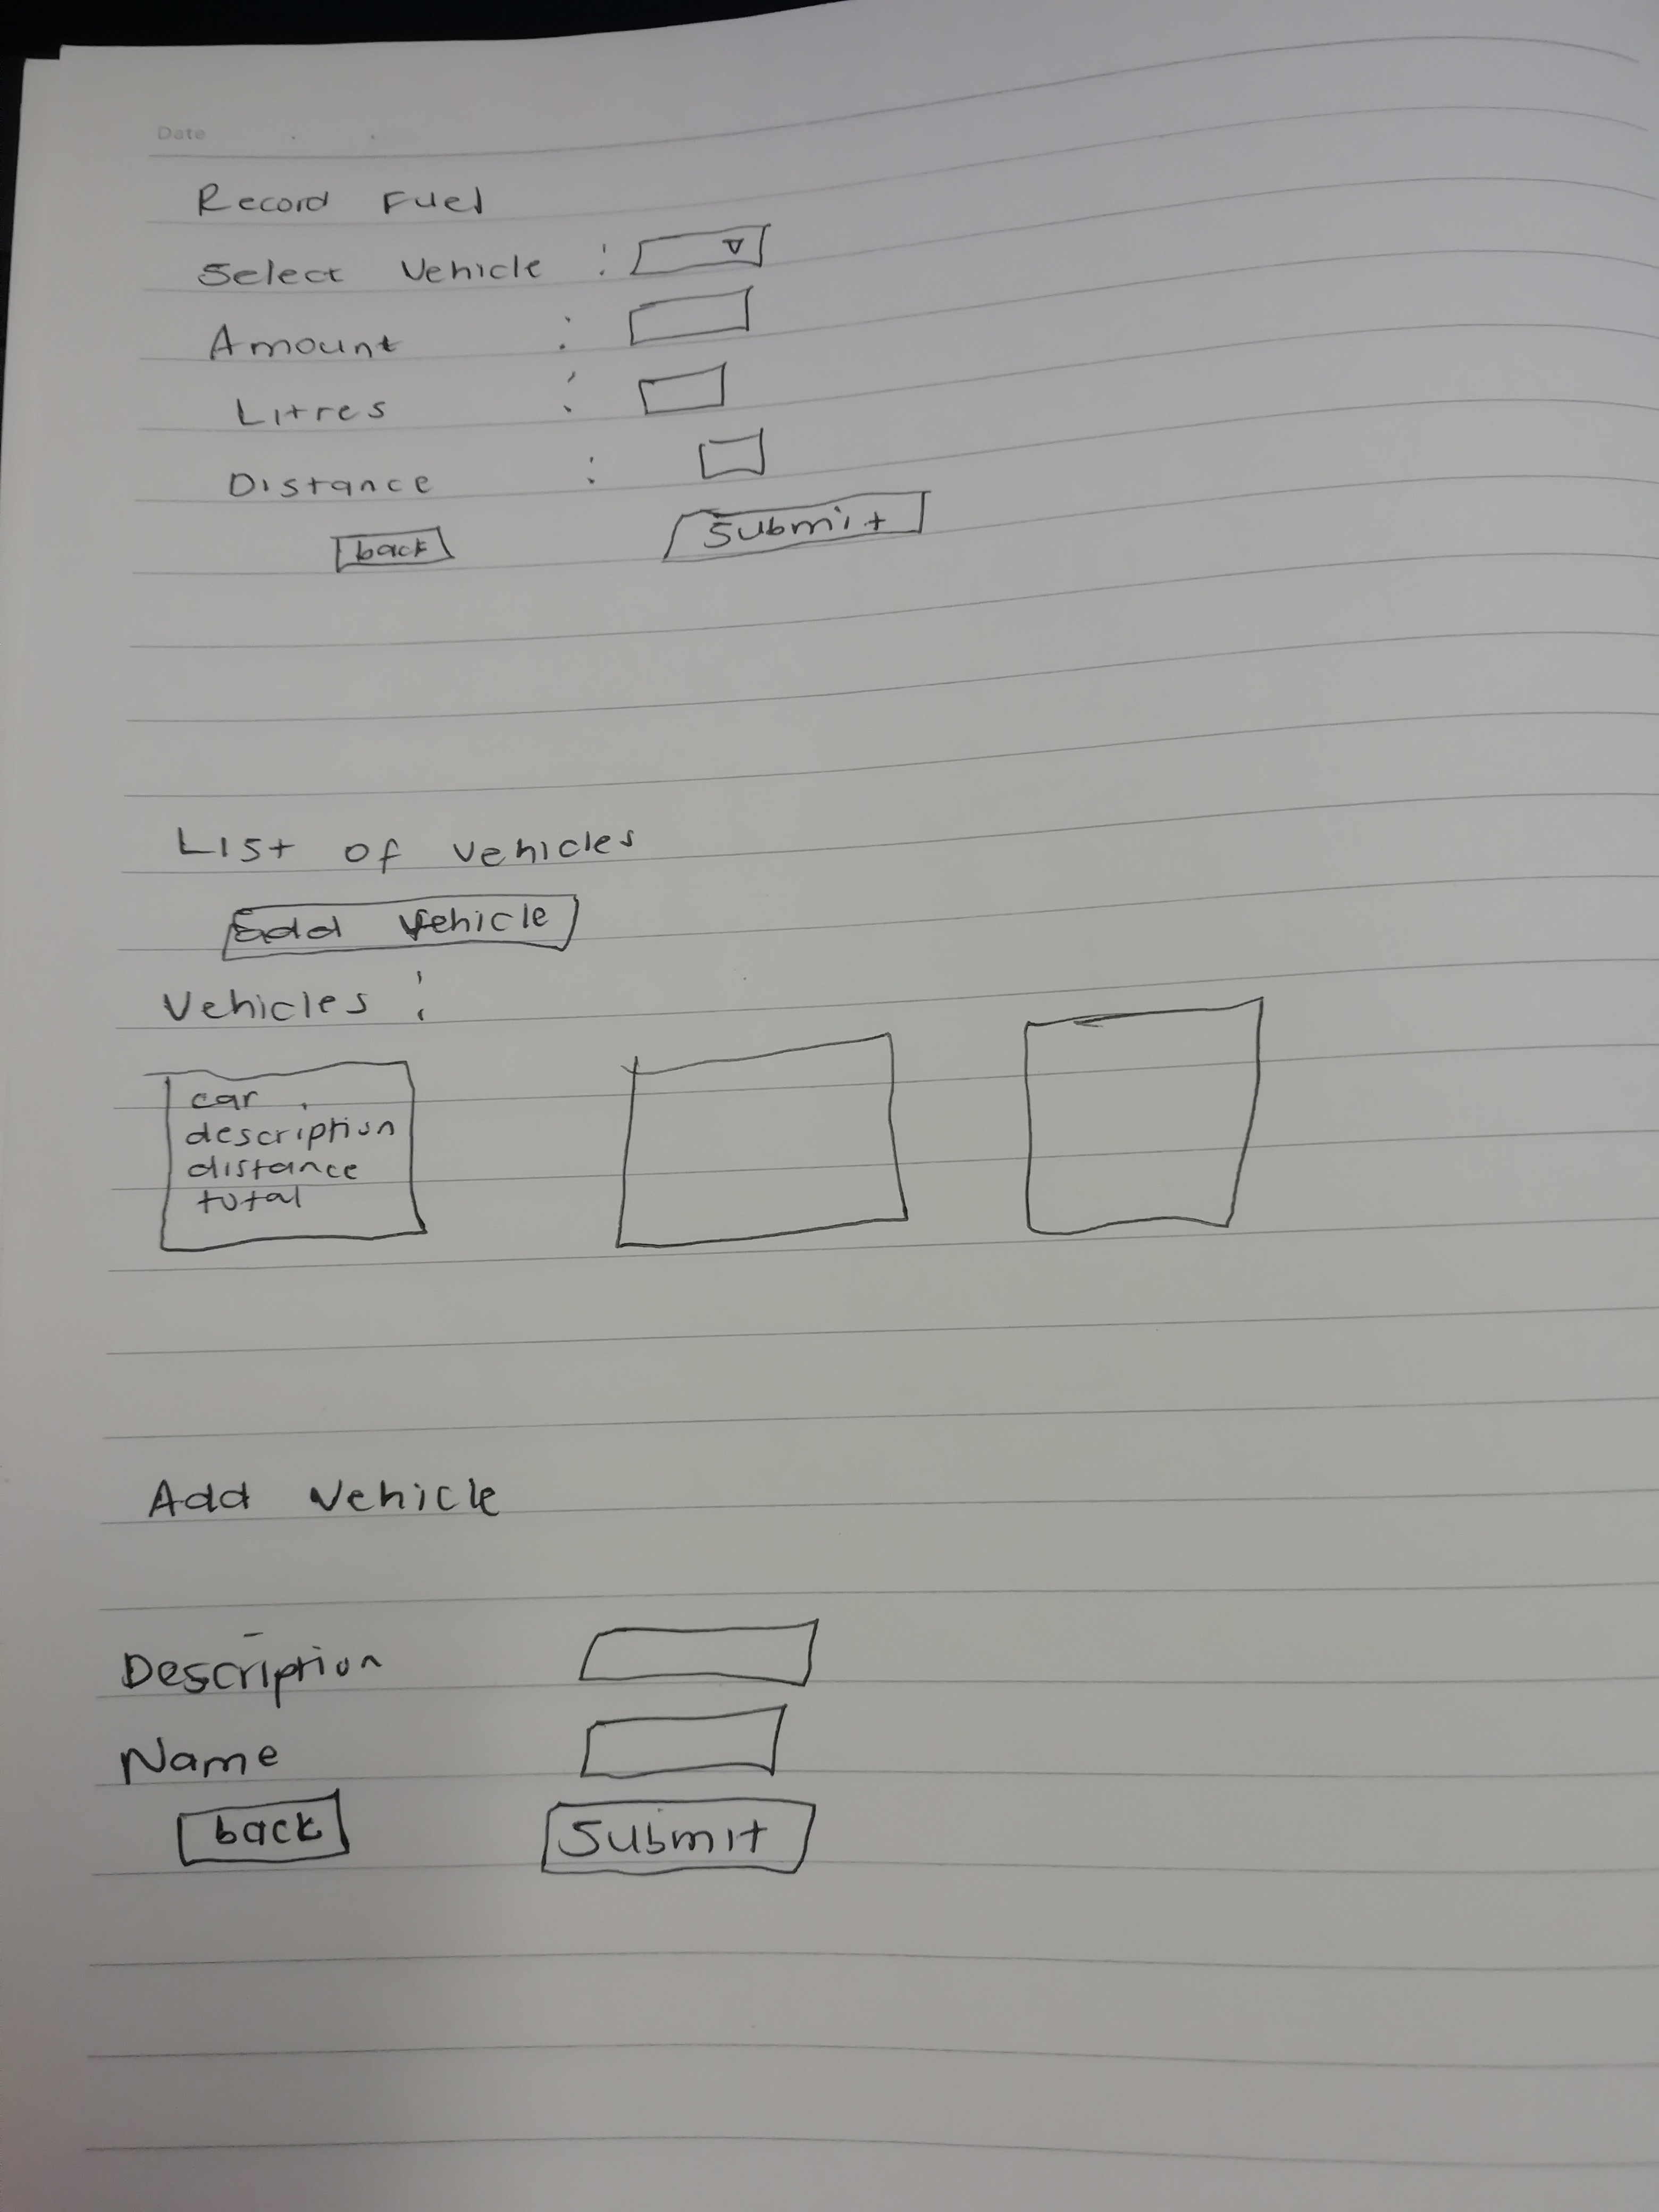 Date
Record Fuel
Select Vehicle :
Amount :
Litres :
Distance :
back Submit
List of vehicles
Add Vehicle
Vehicles :
car
description
distance
total
Add Vehicle
Description
Name
back Submit